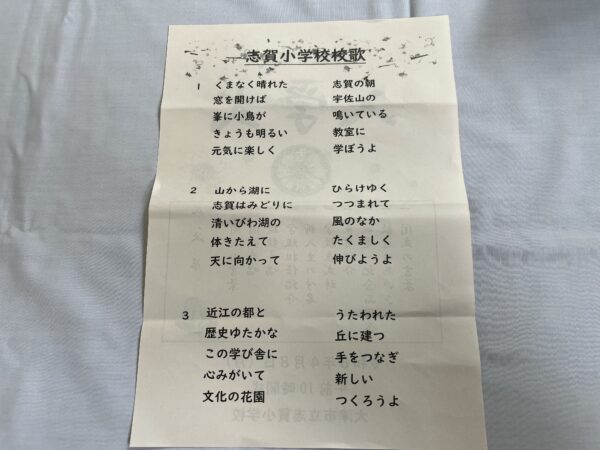 志賀小学校校歌
1 くまなく晴れた 志賀の朝
窓を開けば 宇佐山の
峯に小鳥が 鳴いている
きょうも明るい 教室に
元気に楽しく 学ぼうよ
2 山から湖に ひらけゆく
志賀はみどりに つつまれて
清いびわ湖の 風のなか
体きたえて たくましく
天に向かって 伸びようよ
3 近江の都と うたわれた
歴史ゆたかな 丘に建つ
この学び舎に 手をつなぎ
心みがいて 新しい
文化の花園 つくろうよ